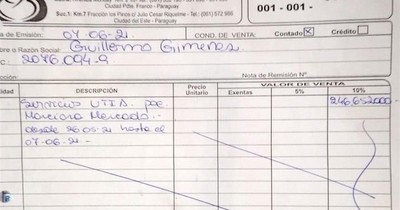 Ciudad Pdte. Franco - Paraguay
Suc.1: Km.7 Fracción Los Pinos c/ Julio Cesar Riquelme - Tel.: (061) 572 966
Ciudad del Este - Paraguay
001 - 001 -
a de Emisión: 07.06.21 COND. DE VENTA: Contado Crédito
bre o Razón Social: Guillermo Gimenez
C.: 2076.094-9
cción: Nota de Remisión Nº:
tidad DESCRIPCIÓN Precio Unitario VALOR DE VENTA
Exentas 5% 10%
Servicios UTIA. pac. 246.652.000-
Marciana Mercado.-
desde 26.05.21 hasta el
07.06.21.-